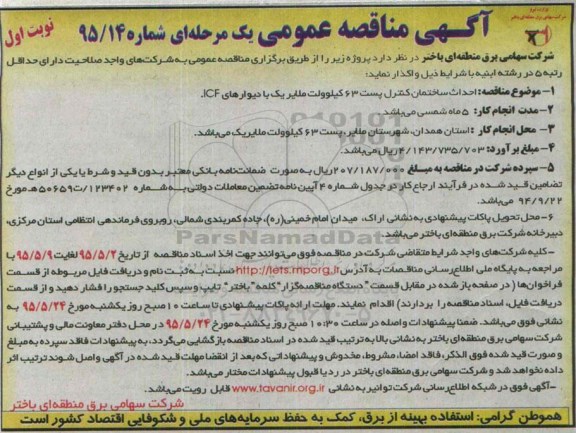 نوبت اول
آگهی مناقصه عمومی یک مرحله‌ای شماره ۹۵/۱۴
شرکت سهامی برق منطقه‌ای باختر
شرکت سهامی برق منطقه‌ای باختر در نظر دارد پروژه زیر را از طریق برگزاری مناقصه عمومی به شرکت‌های واجد صلاحیت دارای حداقل
رتبه ۵ در رشته ابنیه با شرایط ذیل واگذار نماید:
۱- موضوع مناقصه: احداث ساختمان کنترل پست ۶۳ کیلوولت ملایر یک با دیوارهای ICF.
۲- مدت انجام کار: ۵ ماه شمسی می‌باشد.
۳- محل انجام کار: استان همدان، شهرستان ملایر، پست ۶۳ کیلوولت ملایر یک می‌باشد.
۴- مبلغ برآورد: ۴/۱۴۳/۷۳۵/۷۰۳ ریال می‌باشد.
۵- سپرده شرکت در مناقصه به مبلغ ۲۰۷/۱۸۷/۰۰۰ ریال به صورت ضمانت‌نامه بانکی معتبر بدون قید و شرط یا یکی از انواع دیگر
تضامین قید شده در فرآیند ارجاع کار در جدول شماره ۴ آیین نامه تضمین معاملات دولتی به شماره ۱۲۳۴۰۲/ت۵۰۶۵۹هـ مورخ
۹۴/۹/۲۲ می‌باشد.
۶- محل تحویل پاکات پیشنهادی به نشانی اراک، میدان امام خمینی(ره)، جاده کمربندی شمالی، روبروی فرماندهی انتظامی استان مرکزی،
دبیرخانه شرکت برق منطقه‌ای باختر می‌باشد.
-کلیه شرکت‌های واجد شرایط متقاضی شرکت در مناقصه فوق می‌توانند جهت اخذ اسناد مناقصه از تاریخ ۹۵/۵/۲ لغایت ۹۵/۵/۹ با
مراجعه به پایگاه ملی اطلاع‌رسانی مناقصات به آدرس http://iets.mporg.ir نسبت به ثبت نام و دریافت فایل مربوطه از قسمت
فراخوان‌ها (در صفحه باز شده در مقابل قسمت "دستگاه مناقصه‌گزار" کلمه "باختر" تایپ و سپس کلید جستجو را فشار دهید و از قسمت
دریافت فایل، اسناد مناقصه را بردارند) اقدام نمایند. مهلت ارائه پاکات پیشنهادی تا ساعت ۱۰ صبح روز یکشنبه مورخ ۹۵/۵/۲۴ به
نشانی فوق می‌باشد. ضمنا پیشنهادات واصله در ساعت ۱۰:۳۰ صبح روز یکشنبه مورخ ۹۵/۵/۲۴ در محل دفتر معاونت مالی و پشتیبانی
شرکت سهامی برق منطقه‌ای باختر به نشانی بالا به ترتیب قید شده در اسناد مناقصه بازگشایی می‌گردد، به پیشنهادات فاقد سپرده به مبلغ
و صورت قید شده فوق الذکر، فاقد امضا، مشروط، مخدوش و پیشنهاداتی که بعد از انقضا مهلت قید شده در آگهی واصل شوند ترتیب اثر
داده نخواهد شد و شرکت سهامی برق منطقه‌ای باختر در رد یا قبول پیشنهادات مختار می‌باشد.
-آگهی فوق در شبکه اطلاع‌رسانی شرکت توانیر به نشانی www.tavanir.org.ir قابل رویت می‌باشد.
شرکت سهامی برق منطقه‌ای باختر
هموطن گرامی: استفاده بهینه از برق، کمک به حفظ سرمایه‌های ملی و شکوفایی اقتصاد کشور است
ParsNamadData